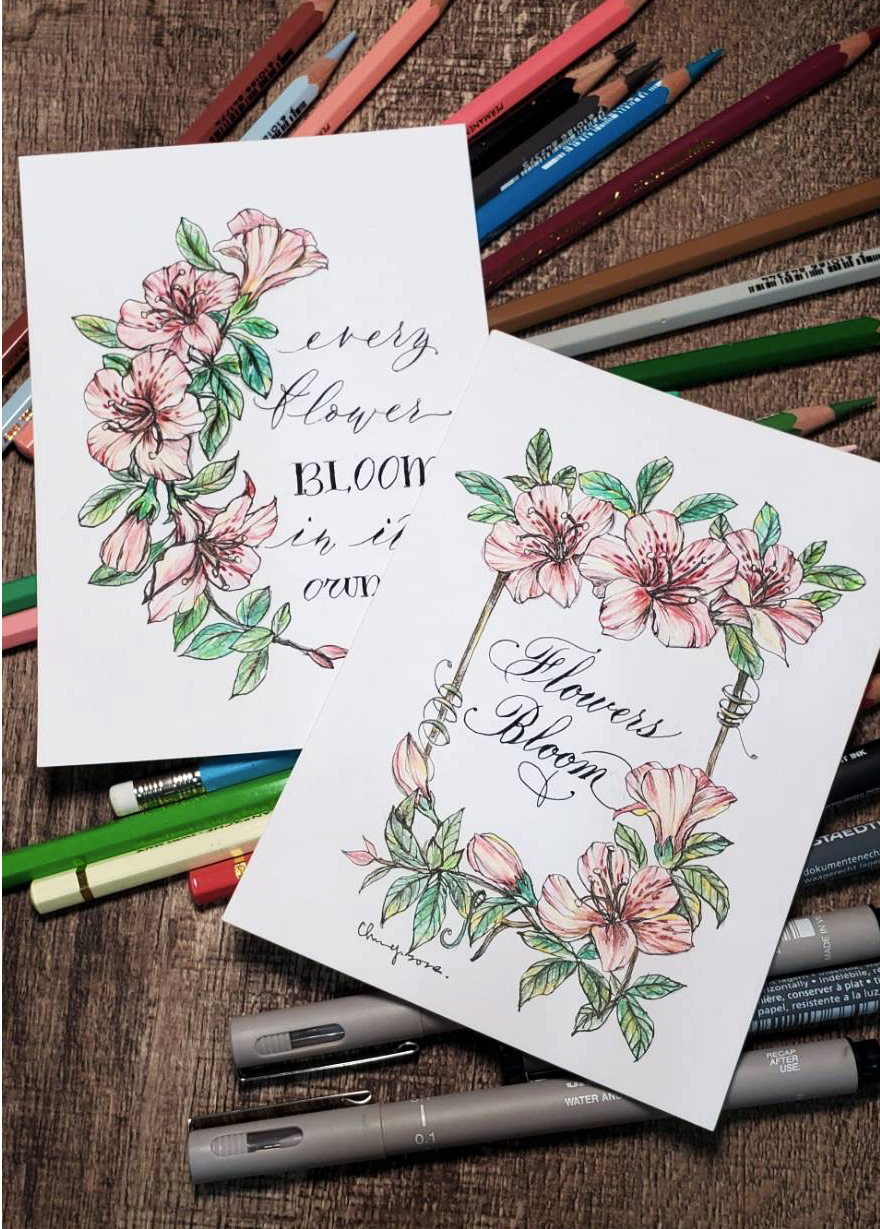 every
flower
BLOOM
in it
own
Flowers
Bloom
PERMANENT
STAEDTL
dokumentenech
waagerecht lager
MADE IN
izontally • indélébile, ré
ière, conserver à plat • ti
papel, resistente a la luz
RECAP
AFTER
USE.
WATER AN
0.1